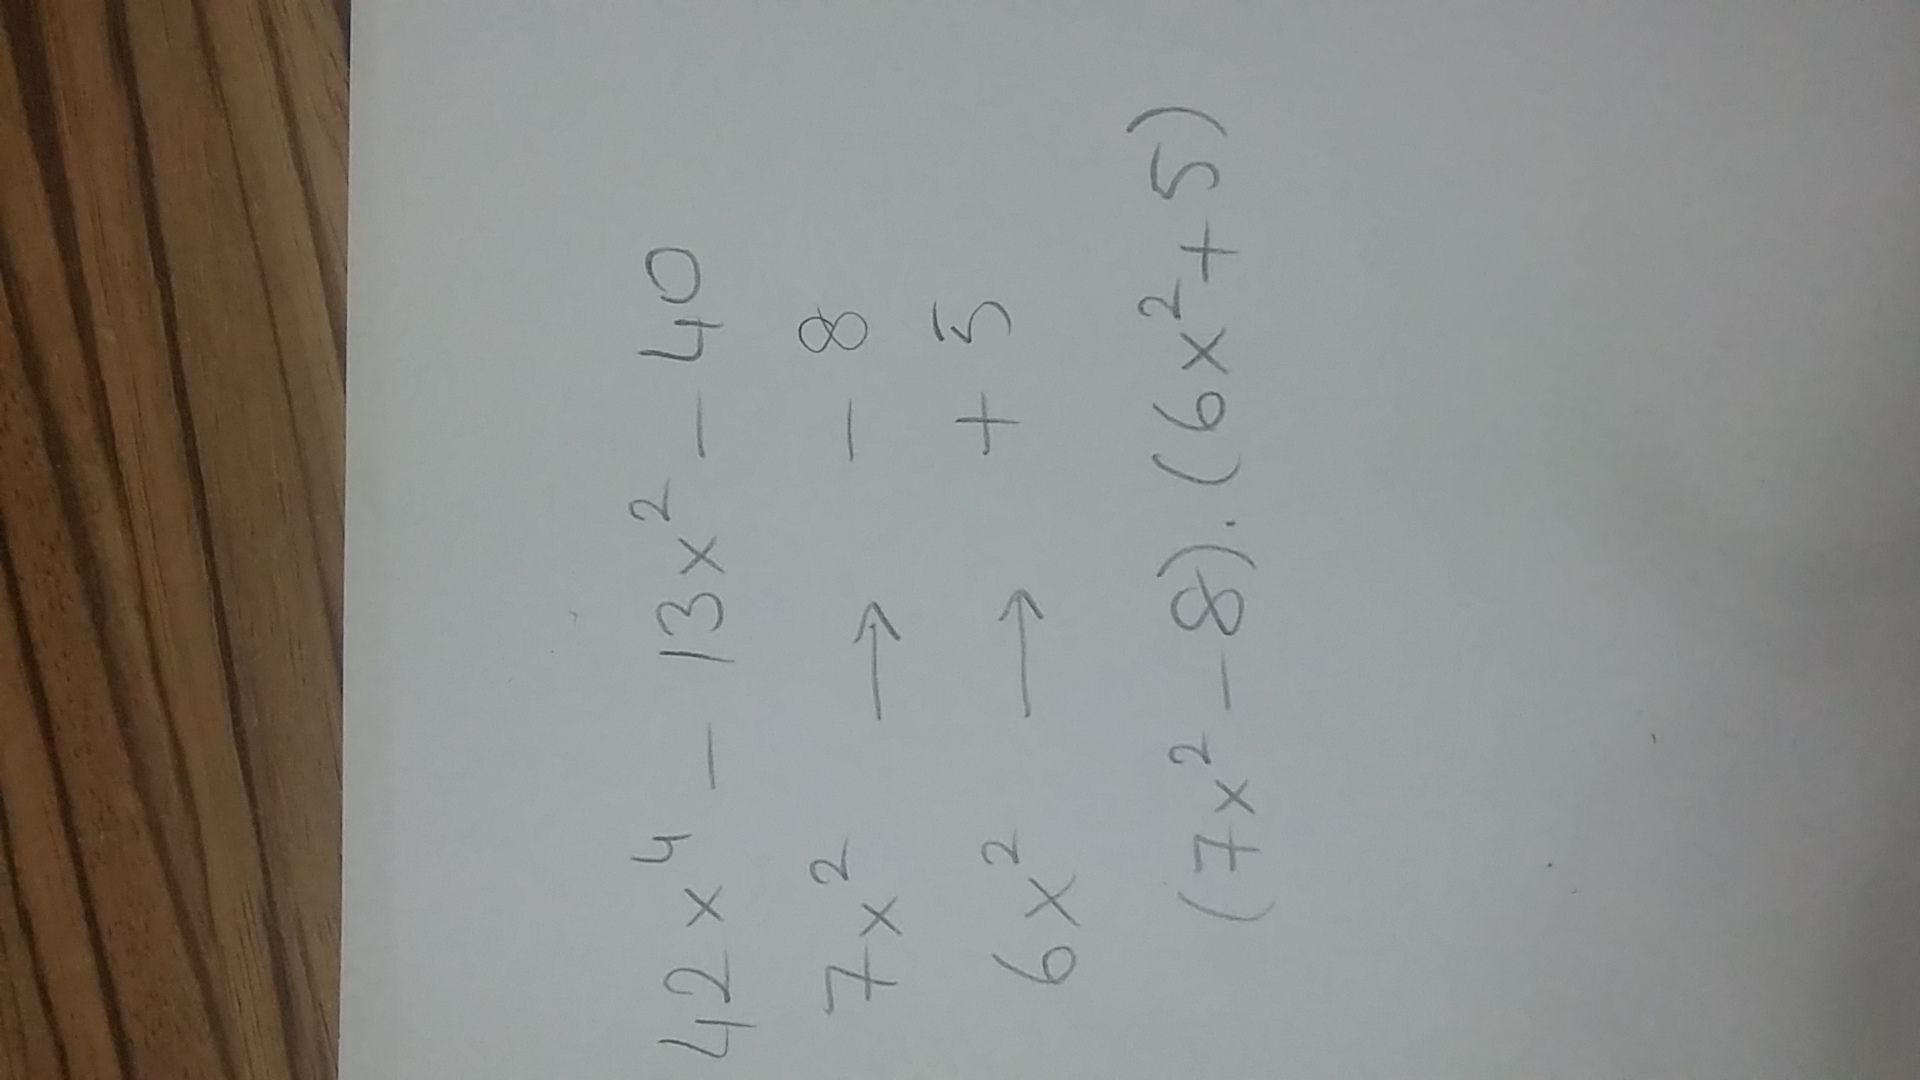 42x⁴ - 13x² - 40
7x² → - 8
6x² → + 5
(7x² - 8).(6x² + 5)